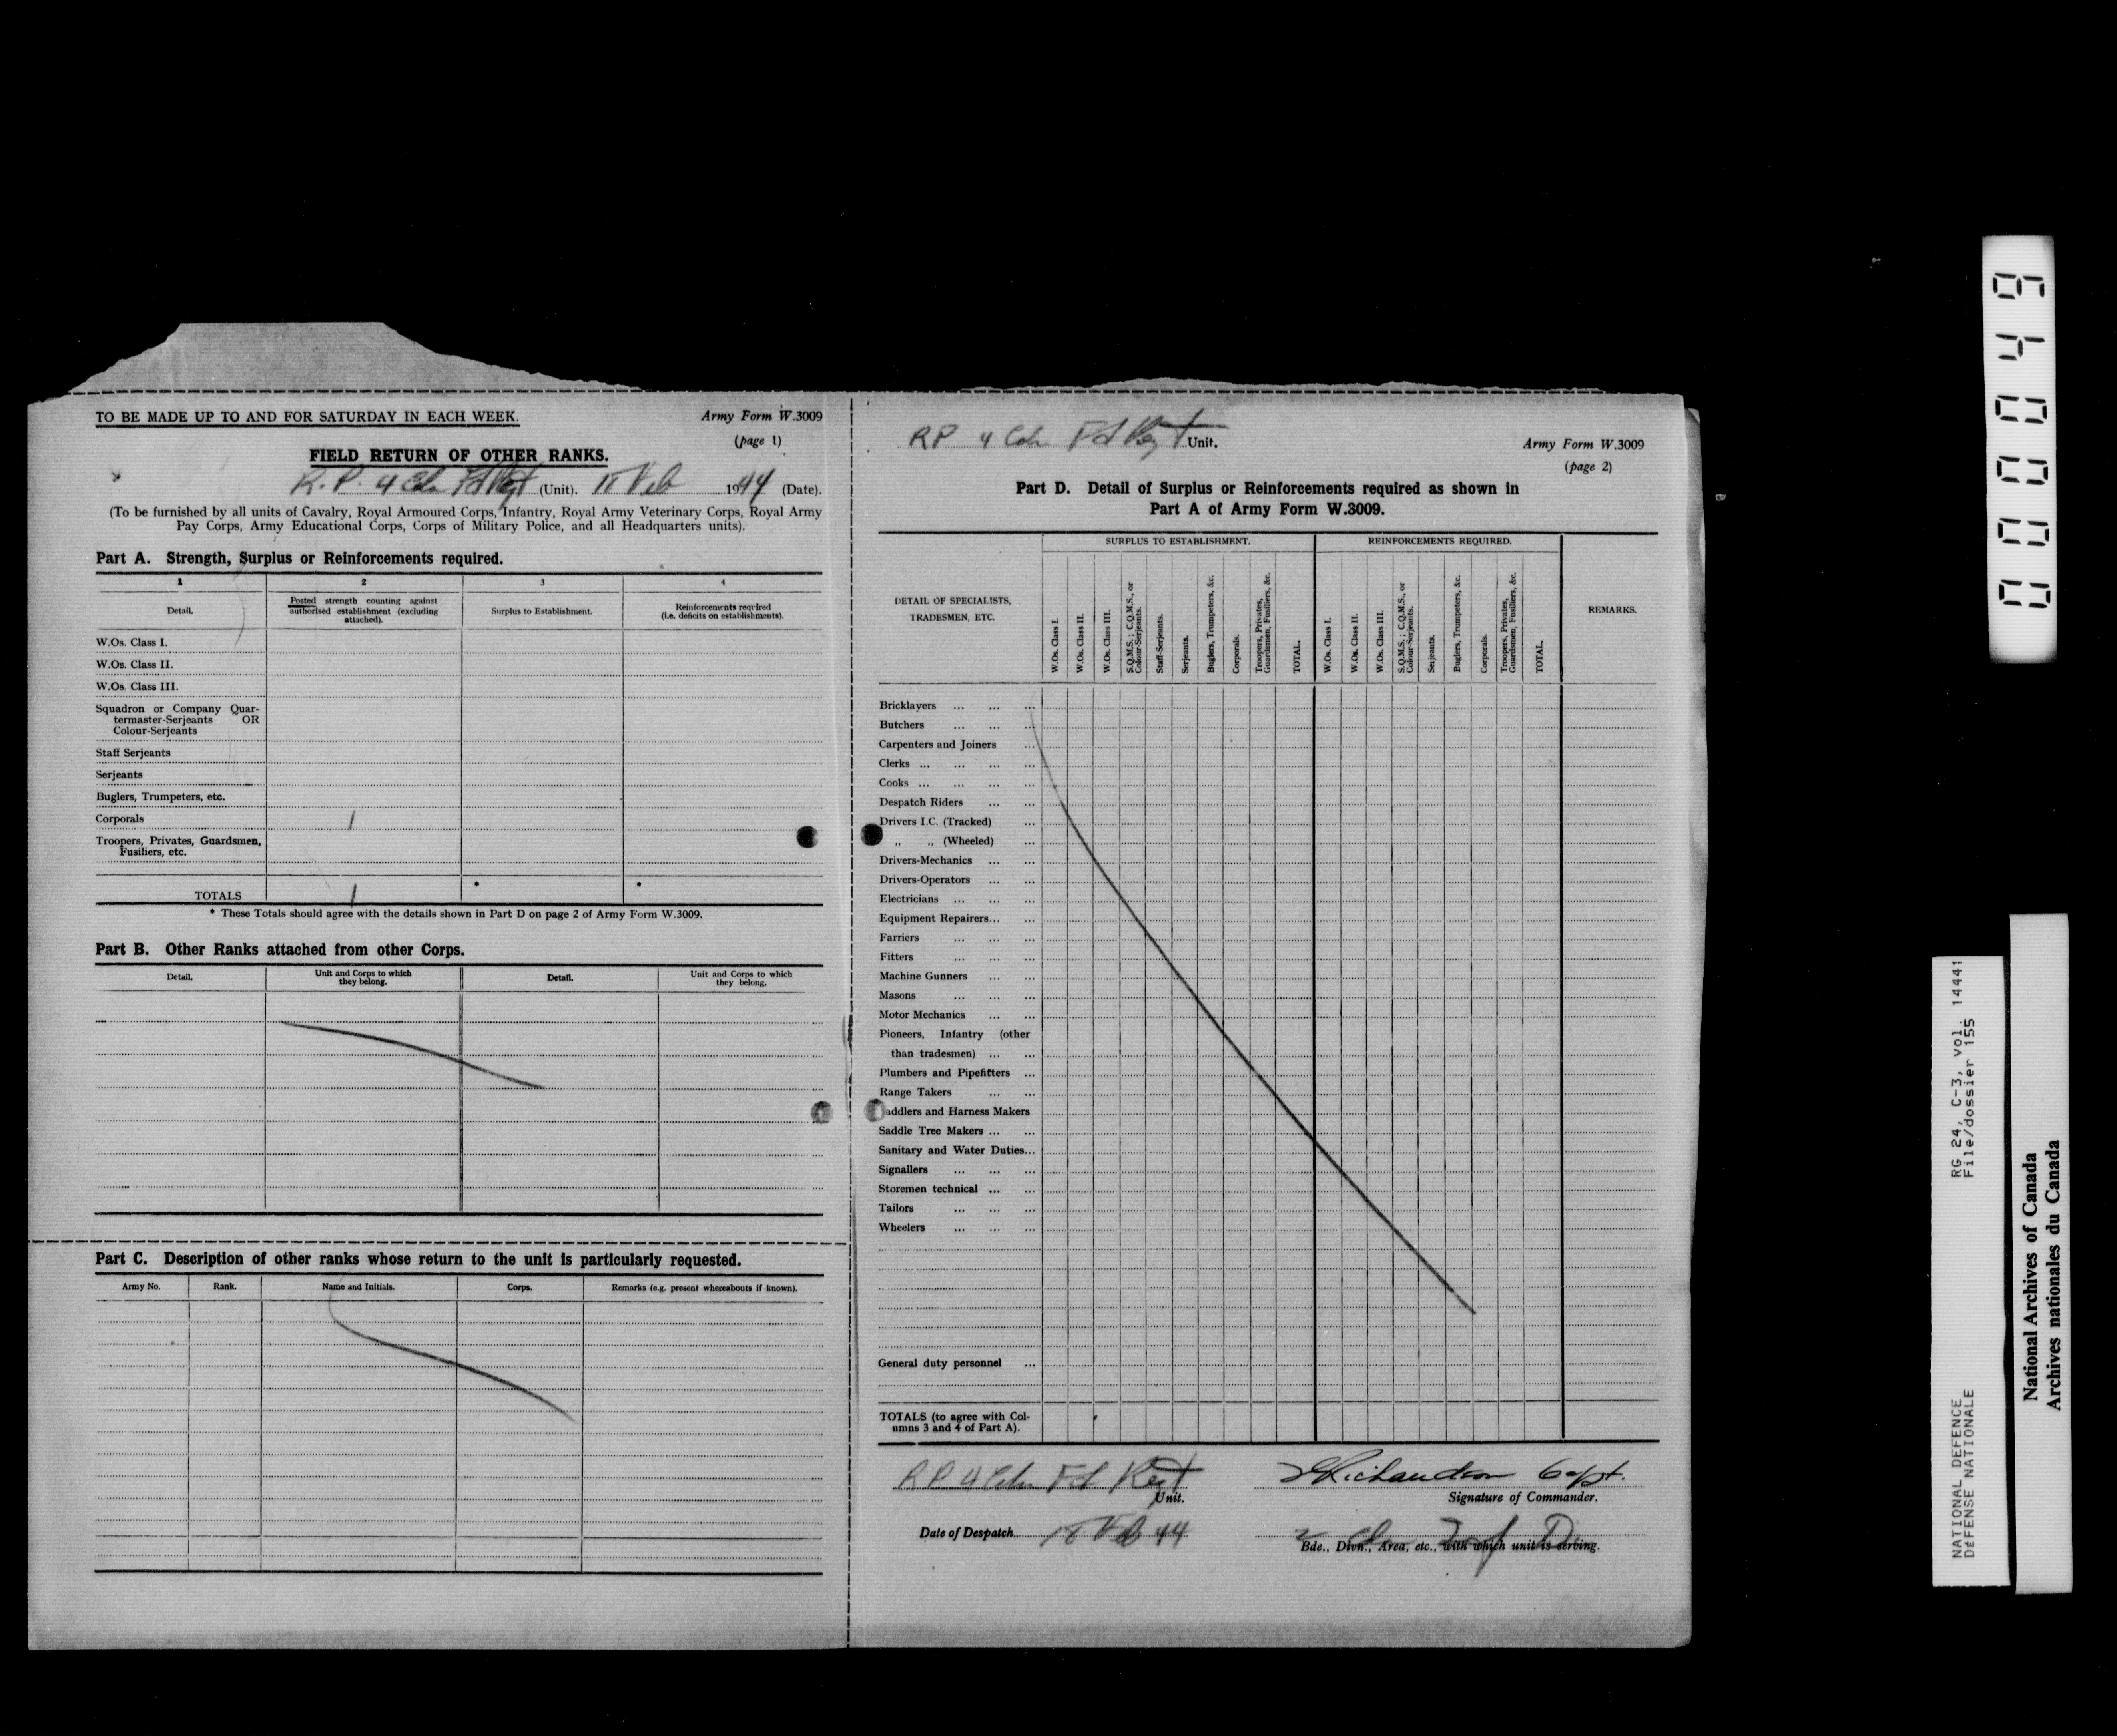 TO BE MADE UP TO AND FOR SATURDAY IN EACH WEEK.
Army Form W.3009
(page 1)
FIELD RETURN OF OTHER RANKS.
R.P. 4 Cdn Fd Regt (Unit). Feb 1944 (Date).
(To be furnished by all units of Cavalry, Royal Armoured Corps, Infantry, Royal Army Veterinary Corps, Royal Army
Pay Corps, Army Educational Corps, Corps of Military Police, and all Headquarters units).
Part A. Strength, Surplus or Reinforcements required.
1 2 3 4
Detail.
Posted strength counting against
authorised establishment (excluding
attached).
Surplus to Establishment.
Reinforcements required
(i.e. deficits on establishments).
W.Os. Class I.
W.Os. Class II.
W.Os. Class III.
Squadron or Company Quar-
termaster-Serjeants OR
Colour-Serjeants
Staff Serjeants
Serjeants
Buglers, Trumpeters, etc.
Corporals 1
Troopers, Privates, Guardsmen,
Fusiliers, etc.
TOTALS 1 * *
* These Totals should agree with the details shown in Part D on page 2 of Army Form W.3009.
Part B. Other Ranks attached from other Corps.
Detail.
Unit and Corps to which
they belong.
Detail.
Unit and Corps to which
they belong.
Part C. Description of other ranks whose return to the unit is particularly requested.
Army No. Rank. Name and Initials. Corps. Remarks (e.g. present whereabouts if known).
RP 4 Cdn Fd Regt Unit.
Army Form W.3009
(page 2)
Part D. Detail of Surplus or Reinforcements required as shown in
Part A of Army Form W.3009.
SURPLUS TO ESTABLISHMENT. REINFORCEMENTS REQUIRED.
DETAIL OF SPECIALISTS,
TRADESMEN, ETC.
W.Os. Class I.
W.Os. Class II.
W.Os. Class III.
S.Q.M.S.; C.Q.M.S., or
Colour-Serjeants.
Staff-Serjeants.
Serjeants.
Buglers, Trumpeters, &c.
Corporals.
Troopers, Privates,
Guardsmen, Fusiliers, &c.
TOTAL.
W.Os. Class I.
W.Os. Class II.
W.Os. Class III.
S.Q.M.S.; C.Q.M.S., or
Colour-Serjeants.
Serjeants.
Buglers, Trumpeters, &c.
Corporals.
Troopers, Privates,
Guardsmen, Fusiliers, &c.
TOTAL.
REMARKS.
Bricklayers ... ... ...
Butchers ... ... ...
Carpenters and Joiners ...
Clerks ... ... ... ...
Cooks ... ... ... ...
Despatch Riders ... ...
Drivers I.C. (Tracked) ...
„ „ (Wheeled) ...
Drivers-Mechanics ... ...
Drivers-Operators ... ...
Electricians ... ... ...
Equipment Repairers... ...
Farriers ... ... ...
Fitters ... ... ...
Machine Gunners ... ...
Masons ... ... ...
Motor Mechanics ... ...
Pioneers, Infantry (other
than tradesmen) ... ...
Plumbers and Pipefitters ...
Range Takers ... ...
addlers and Harness Makers
Saddle Tree Makers ... ...
Sanitary and Water Duties...
Signallers ... ... ...
Storemen technical ... ...
Tailors ... ... ...
Wheelers ... ... ...
General duty personnel ...
TOTALS (to agree with Col-
umns 3 and 4 of Part A).
RP 4 Cdn Fd Regt
Unit.
Richardson Capt.
Signature of Commander.
Date of Despatch 18 Feb 44
2 Cdn Inf Div
Bde., Divn., Area, etc., with which unit is serving.
000049
RG 24, C-3, vol. 14441
File/dossier 155
NATIONAL DEFENCE
DÉFENSE NATIONALE
National Archives of Canada
Archives nationales du Canada